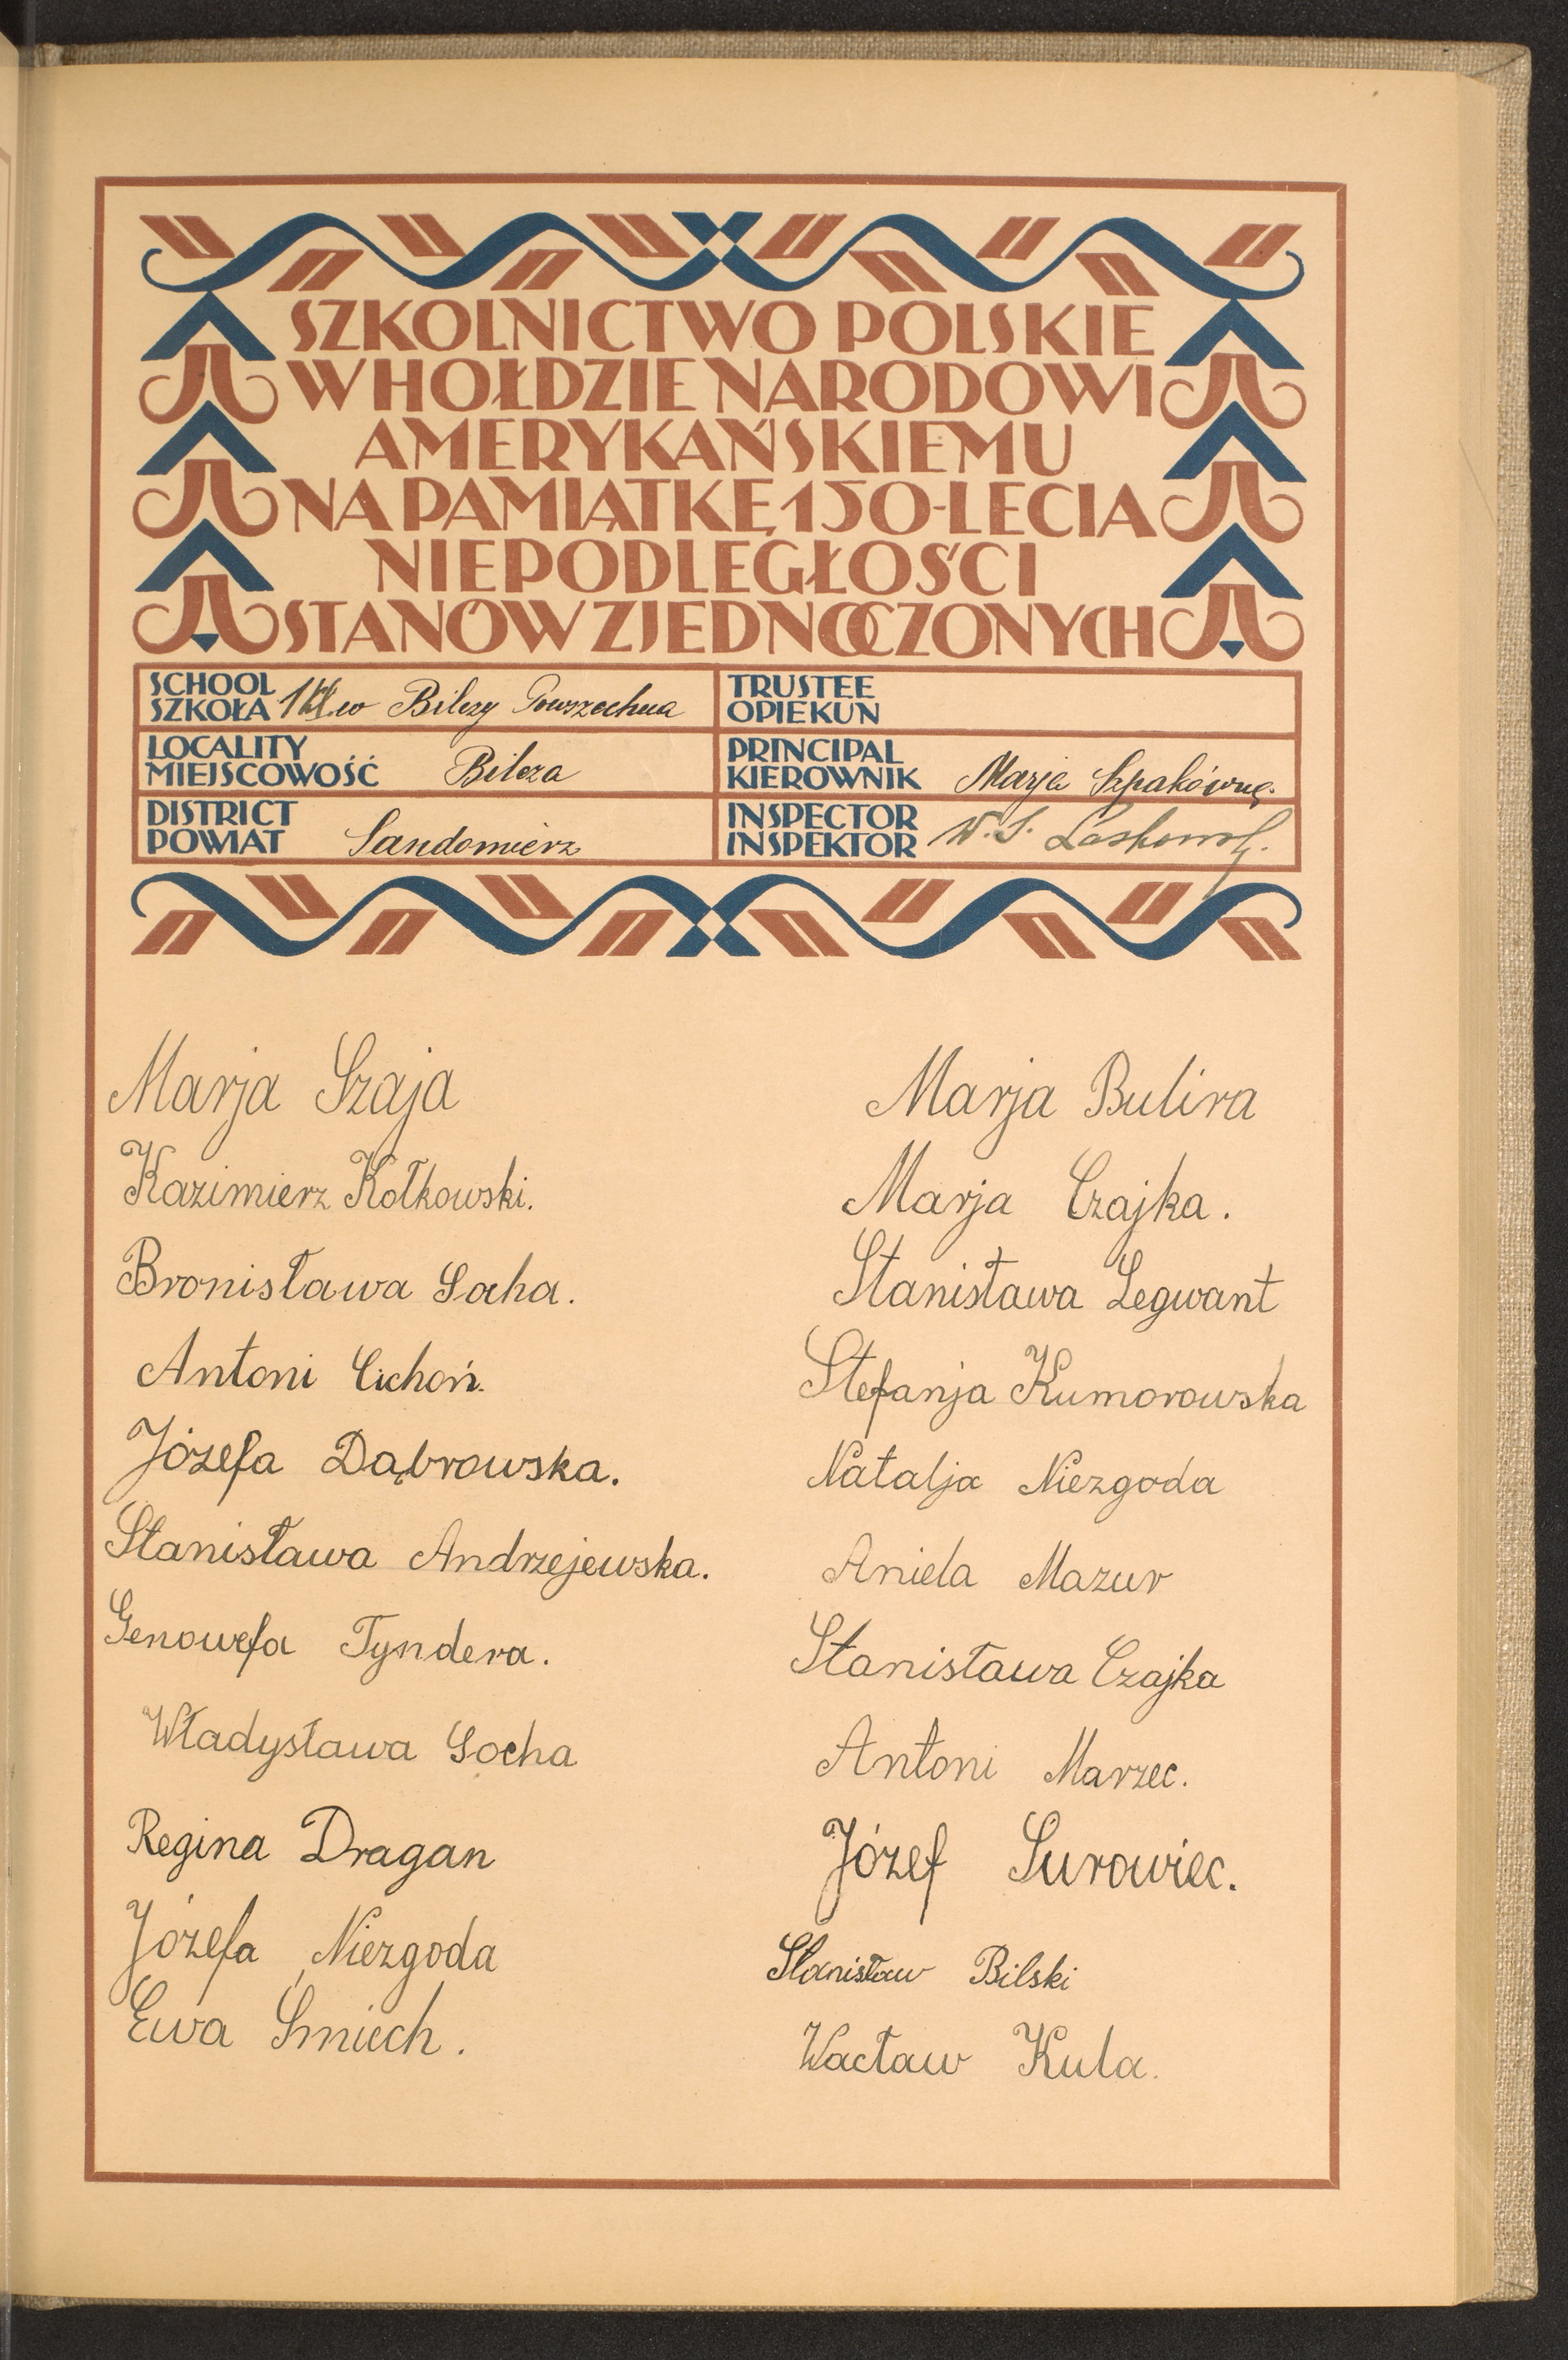 SZKOLNICTWO POLSKIE
W HOŁDZIE NARODOWI
AMERYKAŃSKIEMU
NA PAMIĄTKĘ 150-LECIA
NIEPODLEGŁOŚCI
STANÓW ZJEDNOCZONYCH
SCHOOL
SZKOŁA 1 kl. w Bilczy Powszechna
LOCALITY
MIEJSCOWOŚĆ Bilcza
DISTRICT
POWIAT Sandomierz
TRUSTEE
OPIEKUN
PRINCIPAL
KIEROWNIK Marja Szpakówna
INSPECTOR
INSPEKTOR W. S.
Marja Szaja
Kazimierz Kołkowski.
Bronisława Socha.
Antoni Cichoń.
Józefa Dąbrowska.
Stanisława Andrzejewska.
Genowefa Tyndera.
Władysława Socha
Regina Dragan
Józefa Niezgoda
Ewa Śmiech.
Marja Bulira
Marja Czajka.
Stanisława Legwant
Stefanja Kumorowska
Natalja Niezgoda
Aniela Mazur
Stanisława Czajka
Antoni Marzec.
Józef Surowiec.
Stanisław Bilski
Wacław Kula.